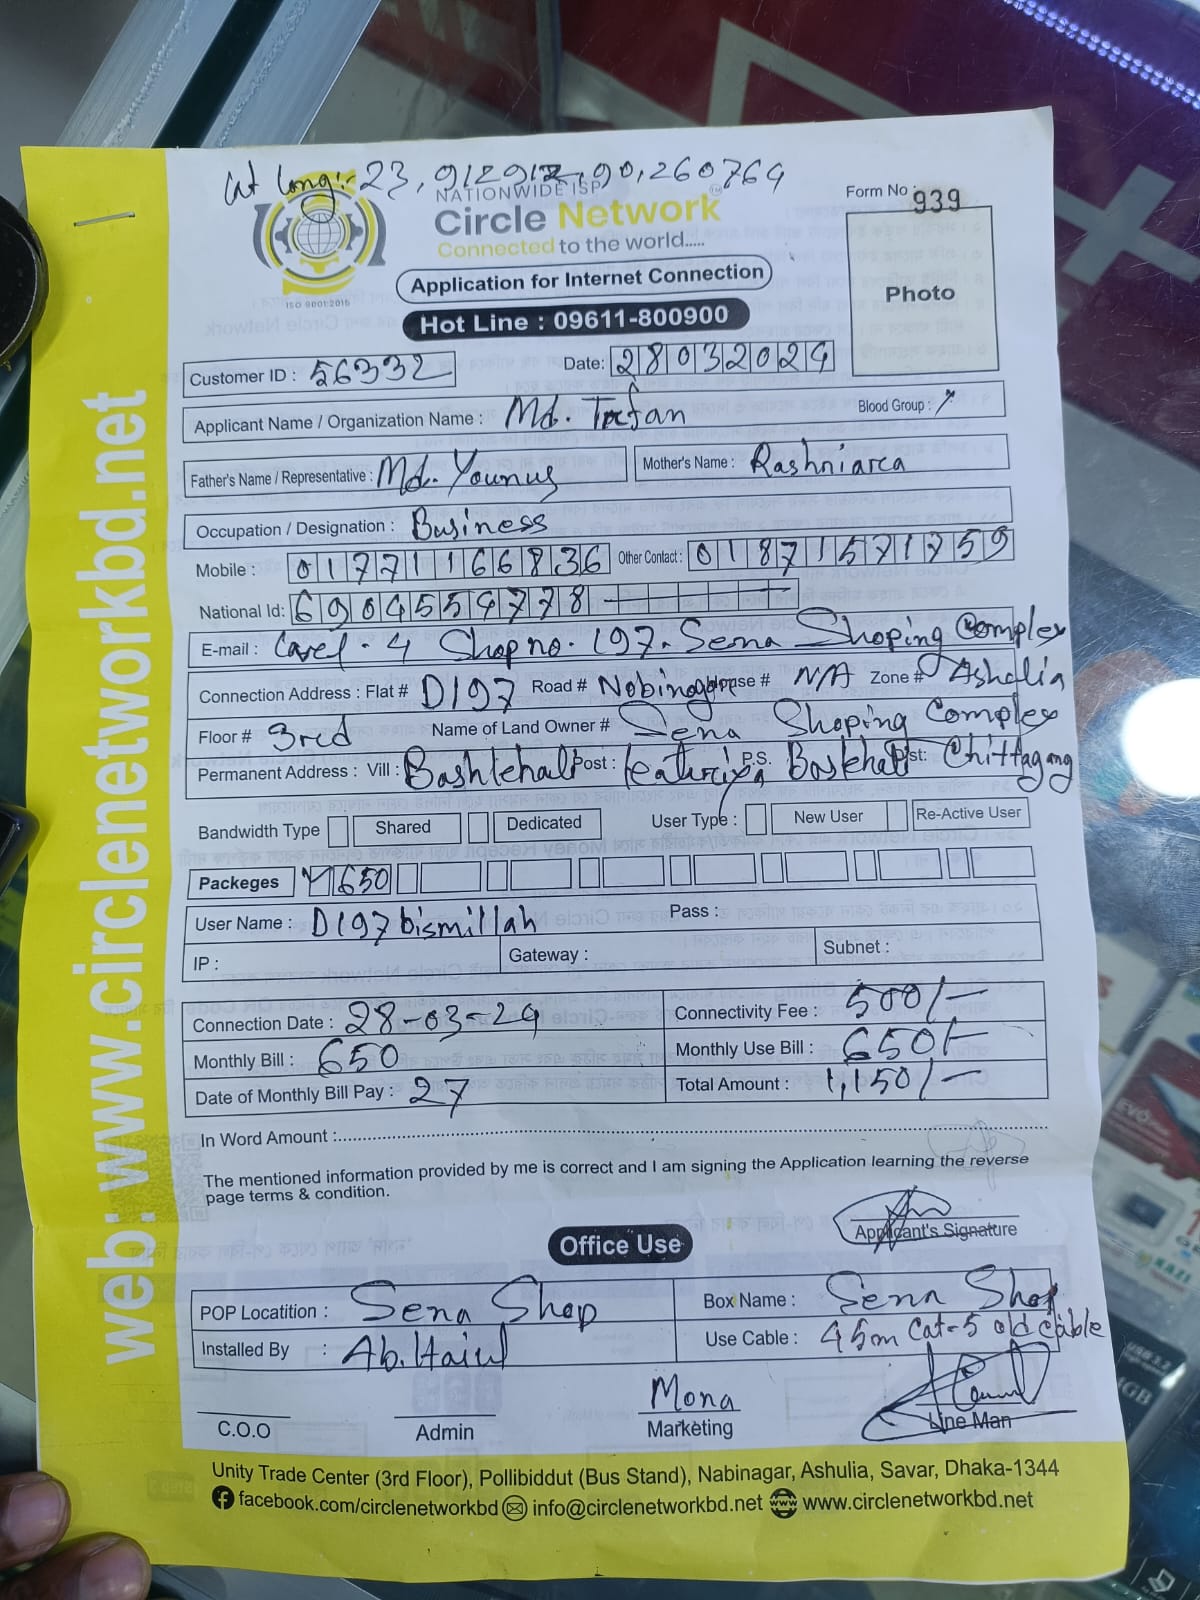 Lat Long:- 23,912912,90,260764
NATIONWIDE ISP
Circle Network
Connected to the world.....
ISO 9001:2015
Form No : 939
Photo
Application for Internet Connection
Hot Line : 09611-800900
Customer ID : 56332 Date: 28032024
Applicant Name / Organization Name : Md. Blood Group :
Father's Name / Representative : Md. Younus Mother's Name : Rashniarca
Occupation / Designation : Business
Mobile : 01771166836 Other Contact : 01871571759
National Id: 6904554778
E-mail : Lavel - 4 Shop no. 197. Sena Shoping Complex
Connection Address : Flat # D197 Road # Nobinagar House # N/A Zone # Ashulia
Floor # 3rd Name of Land Owner # Sena Shoping Complex
Permanent Address : Vill : Post : P.S. Dist: Chittagang
Bandwidth Type Shared Dedicated User Type : New User Re-Active User
Packeges 650
User Name : D197bismillah Pass :
IP : Gateway : Subnet :
Connection Date : 28-03-24 Connectivity Fee : 500/-
Monthly Bill : 650 Monthly Use Bill : 650/-
Date of Monthly Bill Pay : 27 Total Amount : 1,150/-
In Word Amount :
The mentioned information provided by me is correct and I am signing the Application learning the reverse
page terms & condition.
Applicant's Signature
Office Use
POP Locatition : Sena Shop Box Name : Sena Shop
Installed By : Ab. Use Cable : 45m Cat-5 old cable
Mona
C.O.O Admin Marketing Line Man
Unity Trade Center (3rd Floor), Pollibiddut (Bus Stand), Nabinagar, Ashulia, Savar, Dhaka-1344
facebook.com/circlenetworkbd info@circlenetworkbd.net www.circlenetworkbd.net
web: www.circlenetworkbd.net